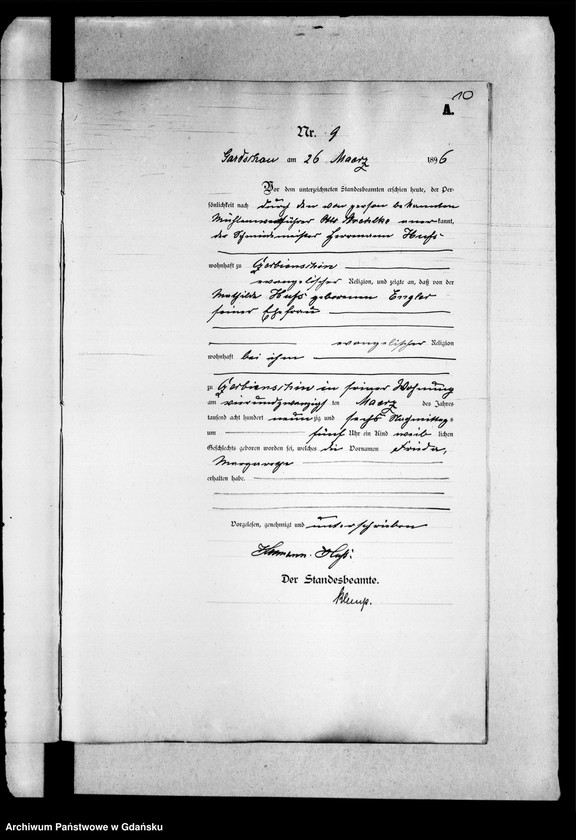 10
A.
Nr. 9
am 26 Maerz 1896
Vor dem unterzeichneten Standesbeamten erschien heute, der Per-
sönlichkeit nach durch den von person bekannten
anerkannt,
der Schmiedemeister Herrmann
wohnhaft zu
evangelischer Religion, und zeigte an, daß von der
Mathilde geborenen Engler
seiner Ehefrau
evangelischer Religion
wohnhaft bei ihm
zu in seiner Wohnung
am vierundzwanzigsten Maerz des Jahres
tausend acht hundert neunzig und sechs Nachmittags
um fünf Uhr ein Kind weiblichen
Geschlechts geboren worden sei, welches die Vornamen Frieda,
Margarethe
erhalten habe.
Vorgelesen, genehmigt und unterschrieben
Hermann
Der Standesbeamte.
Archiwum Państwowe w Gdańsku